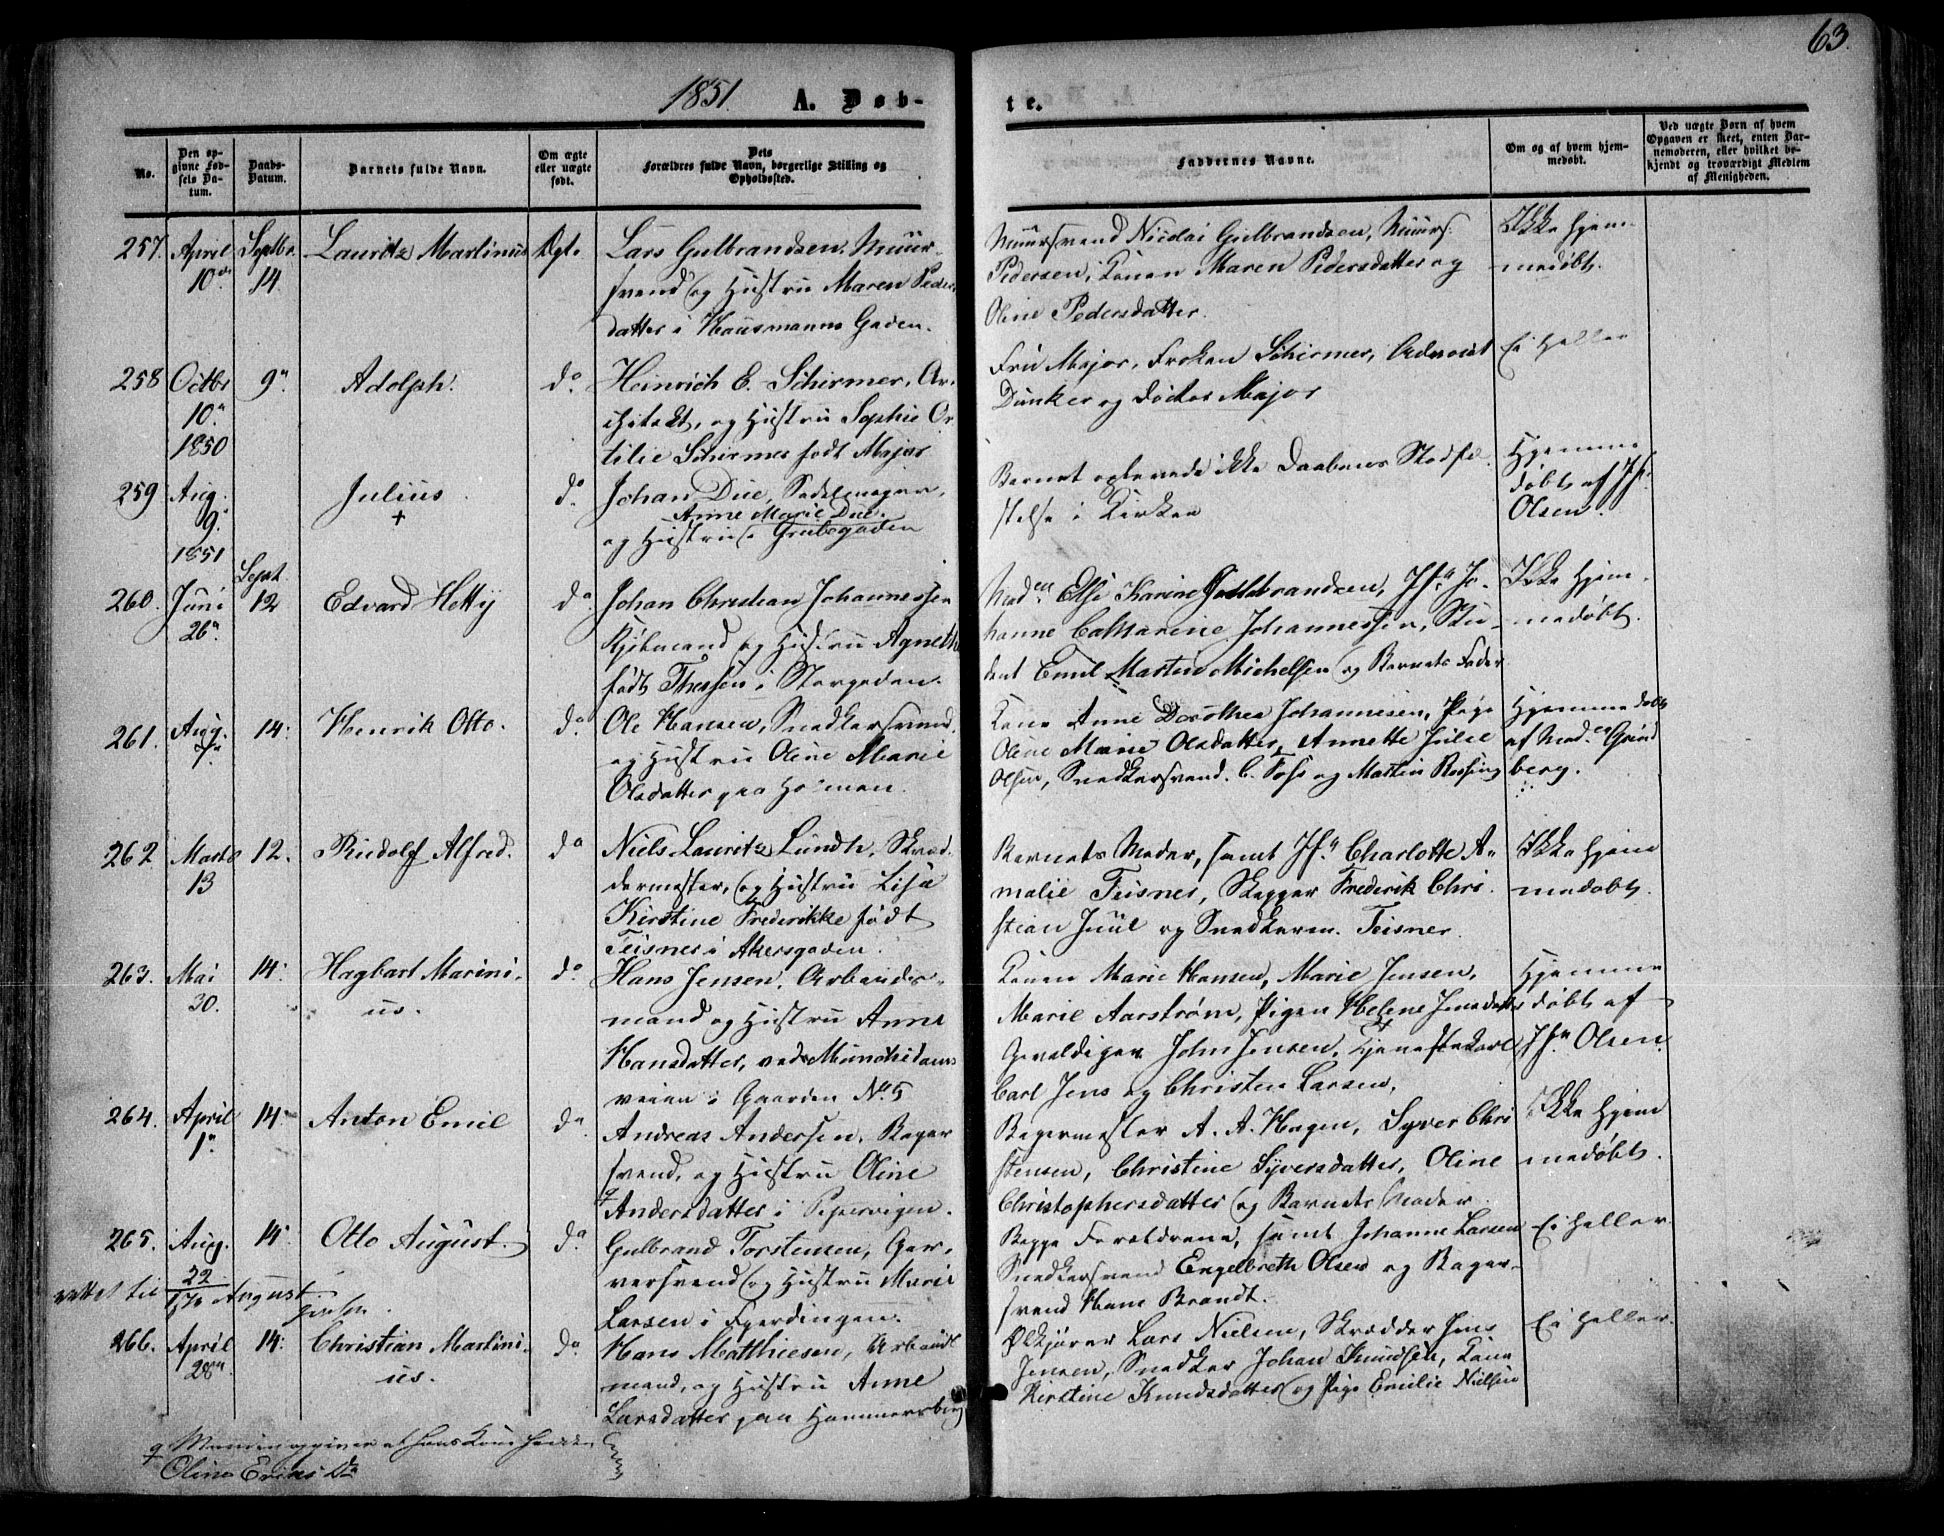 63.
1851. A. Døb-
te.
No.
Den op-
givne Fød-
sels Da-
tum.
Daabs-
Datum.
Barnets fulde Navn.
Om ægte
eller uægte
født.
Dets
Forældres fulde Navn, borgerlige Stilling og
Opholdssted.
Faddernes Navne.
Om og af hvem hjem-
medøbt.
Ved uægte Børn af hvem
Opgaven er skeet, enten Bar-
nemoderen, eller hvilket be-
kjendt og troværdigt Medlem
af Menigheden.
257. April 10de Septbr. 14. Lauritz Martinus Ægt.
Lars Gulbrandsen, Muur-
svend og Hustru Maren Peders
datter i Hausmanns Gaden.
Muursvend Nicolai Gulbrandsen, Muurs:
Pedersen, Konen Maren Pedersdatter og
Oline Pedersdatter.
Ikke hjem-
medøbt.
258 Octbr 10. 1850 9. Adolph. do
Heinrich E. Schirmer, Ar-
chitekt, og Hustru Sophie Ot-
tilie Schirmer født Major
Fru Major, Frøken Schirmer, Advocat
Dunker og Doctor Major
Ei heller
259 Aug. 9. 1851 Julius + do
Johan Due, Sadelmager,
Anne Marie Due.
og Hustru i Grubegaden
Barnet oplevede ikke Daabens Stadfæ-
stelse i Kirken
Hjemme
døbt af Jf.
Olsen.
260. Juni 26. Sept. 12 Edvard Hettij do
Johan Christian Johannessen
Kjøbmand og Hustru Agnethe
født Thessen i Storgaden.
Mad. Else Karine Gulbrandsen, Jfr Jo-
hanne Catharine Johannessen, Stu-
dent Emil Martin Michelsen og Barnets Fader
Ikke hjem-
medøbt.
261. Aug. 7. 14. Henrik Otto. do
Ole Hansen, Snedkersvend,
og Hustru Oline Marie
Olsdatter paa
Kone Anne Dorothea Johannesen, Pige
Oline Marie Olsdatter, Annette Julie
Olsen, Snedkersvend. C. Foss og Martin Rossing
Hjemmedøbt
af Mad. Grønd
berg.
262 Marts 13 12. Rudolf Alfred. do
Niels Lauritz Lundh, Skræd-
dermester, og Hustru Lisa
Kirstine Frederikke født
Teisner i Akersgaden.
Barnets Moder, samt Jfr. Charlotte A-
malie Teisner, Skipper Frederik Chri-
stian Juul og Snedkeren Teisner.
Ikke hjem
medøbt.
263. Mai 30. 14. Hagbart Marini-
us. do
Hans Jensen, Arbeids-
mand og Hustru Anne
Hansdatter, ved Munchedams
veien i Gaarden No. 5
Konen Marie Hansen, Marie Jensen,
Marie Aarstrøm, Pigen Helene Jensdatter
Gevaldiger John Jensen, Tjenestekarl
Carl Jens og Christen Larsen.
Hjemme
døbt af
Jfr. Olsen.
264. April 1. 14. Anton Emil do
Andreas Andersen, Bager
svend, og Hustru Oline
Andersdatter i Pipervigen.
Bagermester A. A. Hagen, Syver Chri
stensen, Christine Syversdatter, Oline
Christophersdatter og Barnets Moder.
Ikke hjem
medøbt.
265. Aug. 22 14. Otto August. do
rettet til 17/8 August
Gulbrand Torstensen, Gar-
versvend og Hustru Marie
Larsen i Fjerdingen.
Begge Forældrene, samt Johanne Larsen
Snedkersvend Engelbreth Olsen og Bager-
svend Hans Brandt.
Ei heller.
266. April 28de 14. Christian Martini-
us. do
Hans Matthiesen, Arbeids
mand, og Hustru Anne
Larsdatter paa Hammersborg
Ølkjører Lars Nielsen, Skrædder Jens
Jensen, Snedker Johan Knudsen, Kone
Kirstine Knudsdatter og Pige Emilie Nielsen
Ei heller.
Manden opgiver at hans Kone hedder
Oline Eriksda